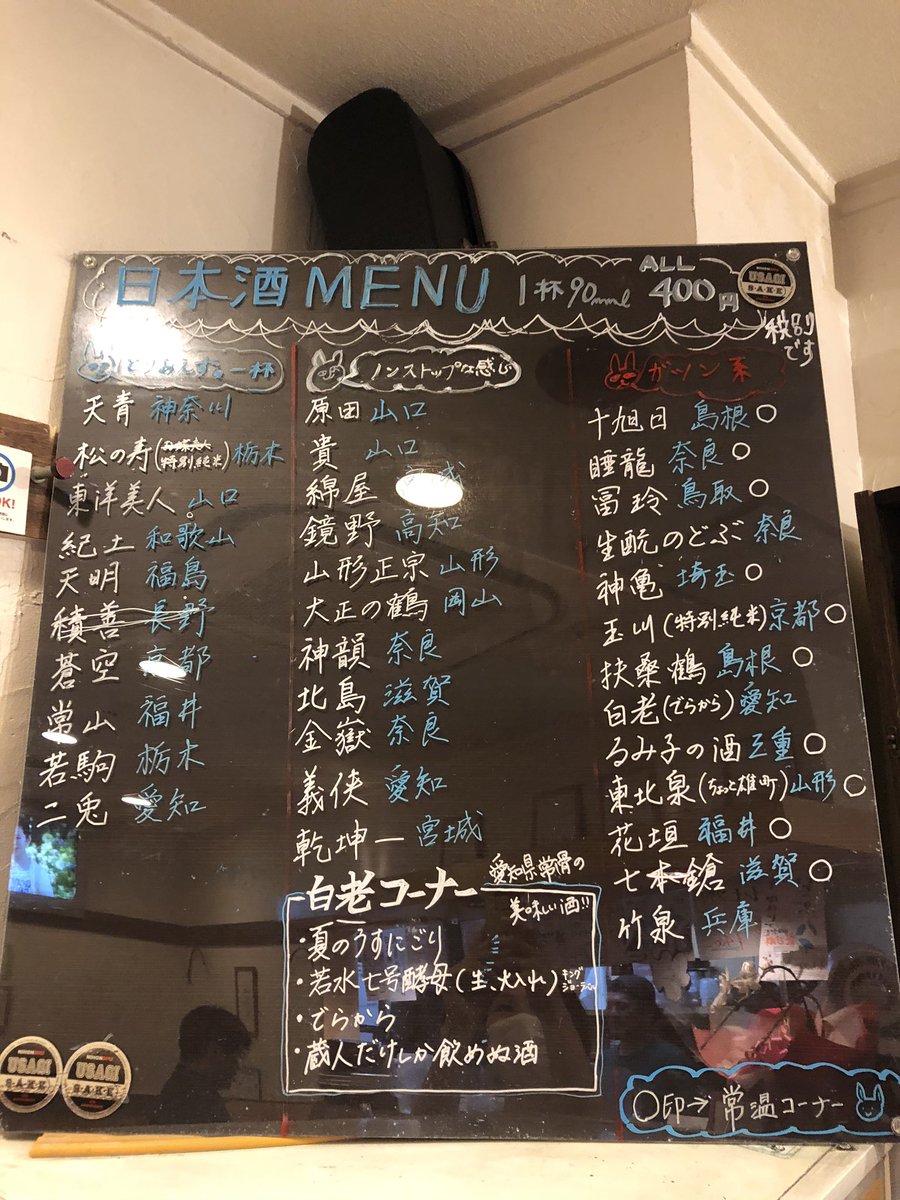 日本酒MENU 1杯90mml ALL 400円
税別です
USAGI SAKE
とりあえず一杯
天青 神奈川
松の寿(特別純米) 栃木
東洋美人 山口
紀土 和歌山
天明 福島
積善 長野
蒼空 京都
常山 福井
若駒 栃木
二兎 愛知
ノンストップな感じ
原田 山口
貴 山口
綿屋 宮城
鏡野 高知
山形正宗 山形
大正の鶴 岡山
神韻 奈良
北島 滋賀
金嶽 奈良
義侠 愛知
乾坤一 宮城
ガツン系
十旭日 島根○
睡龍 奈良○
冨玲 鳥取○
生酛のどぶ 奈良
神亀 埼玉○
玉川(特別純米)京都○
扶桑鶴 島根○
白老(でらから)愛知
るみ子の酒 三重○
東北泉(ちょっと雄町)山形○
花垣 福井○
七本鎗 滋賀○
竹泉 兵庫
白老コーナー
愛知県常滑の
美味しい酒!!
・夏のうすにごり
・若水七号酵母(生、火入れ)
・でらから
・蔵人だけしか飲めぬ酒
○印→常温コーナー
USAGI SAKE
USAGI SAKE
OK!